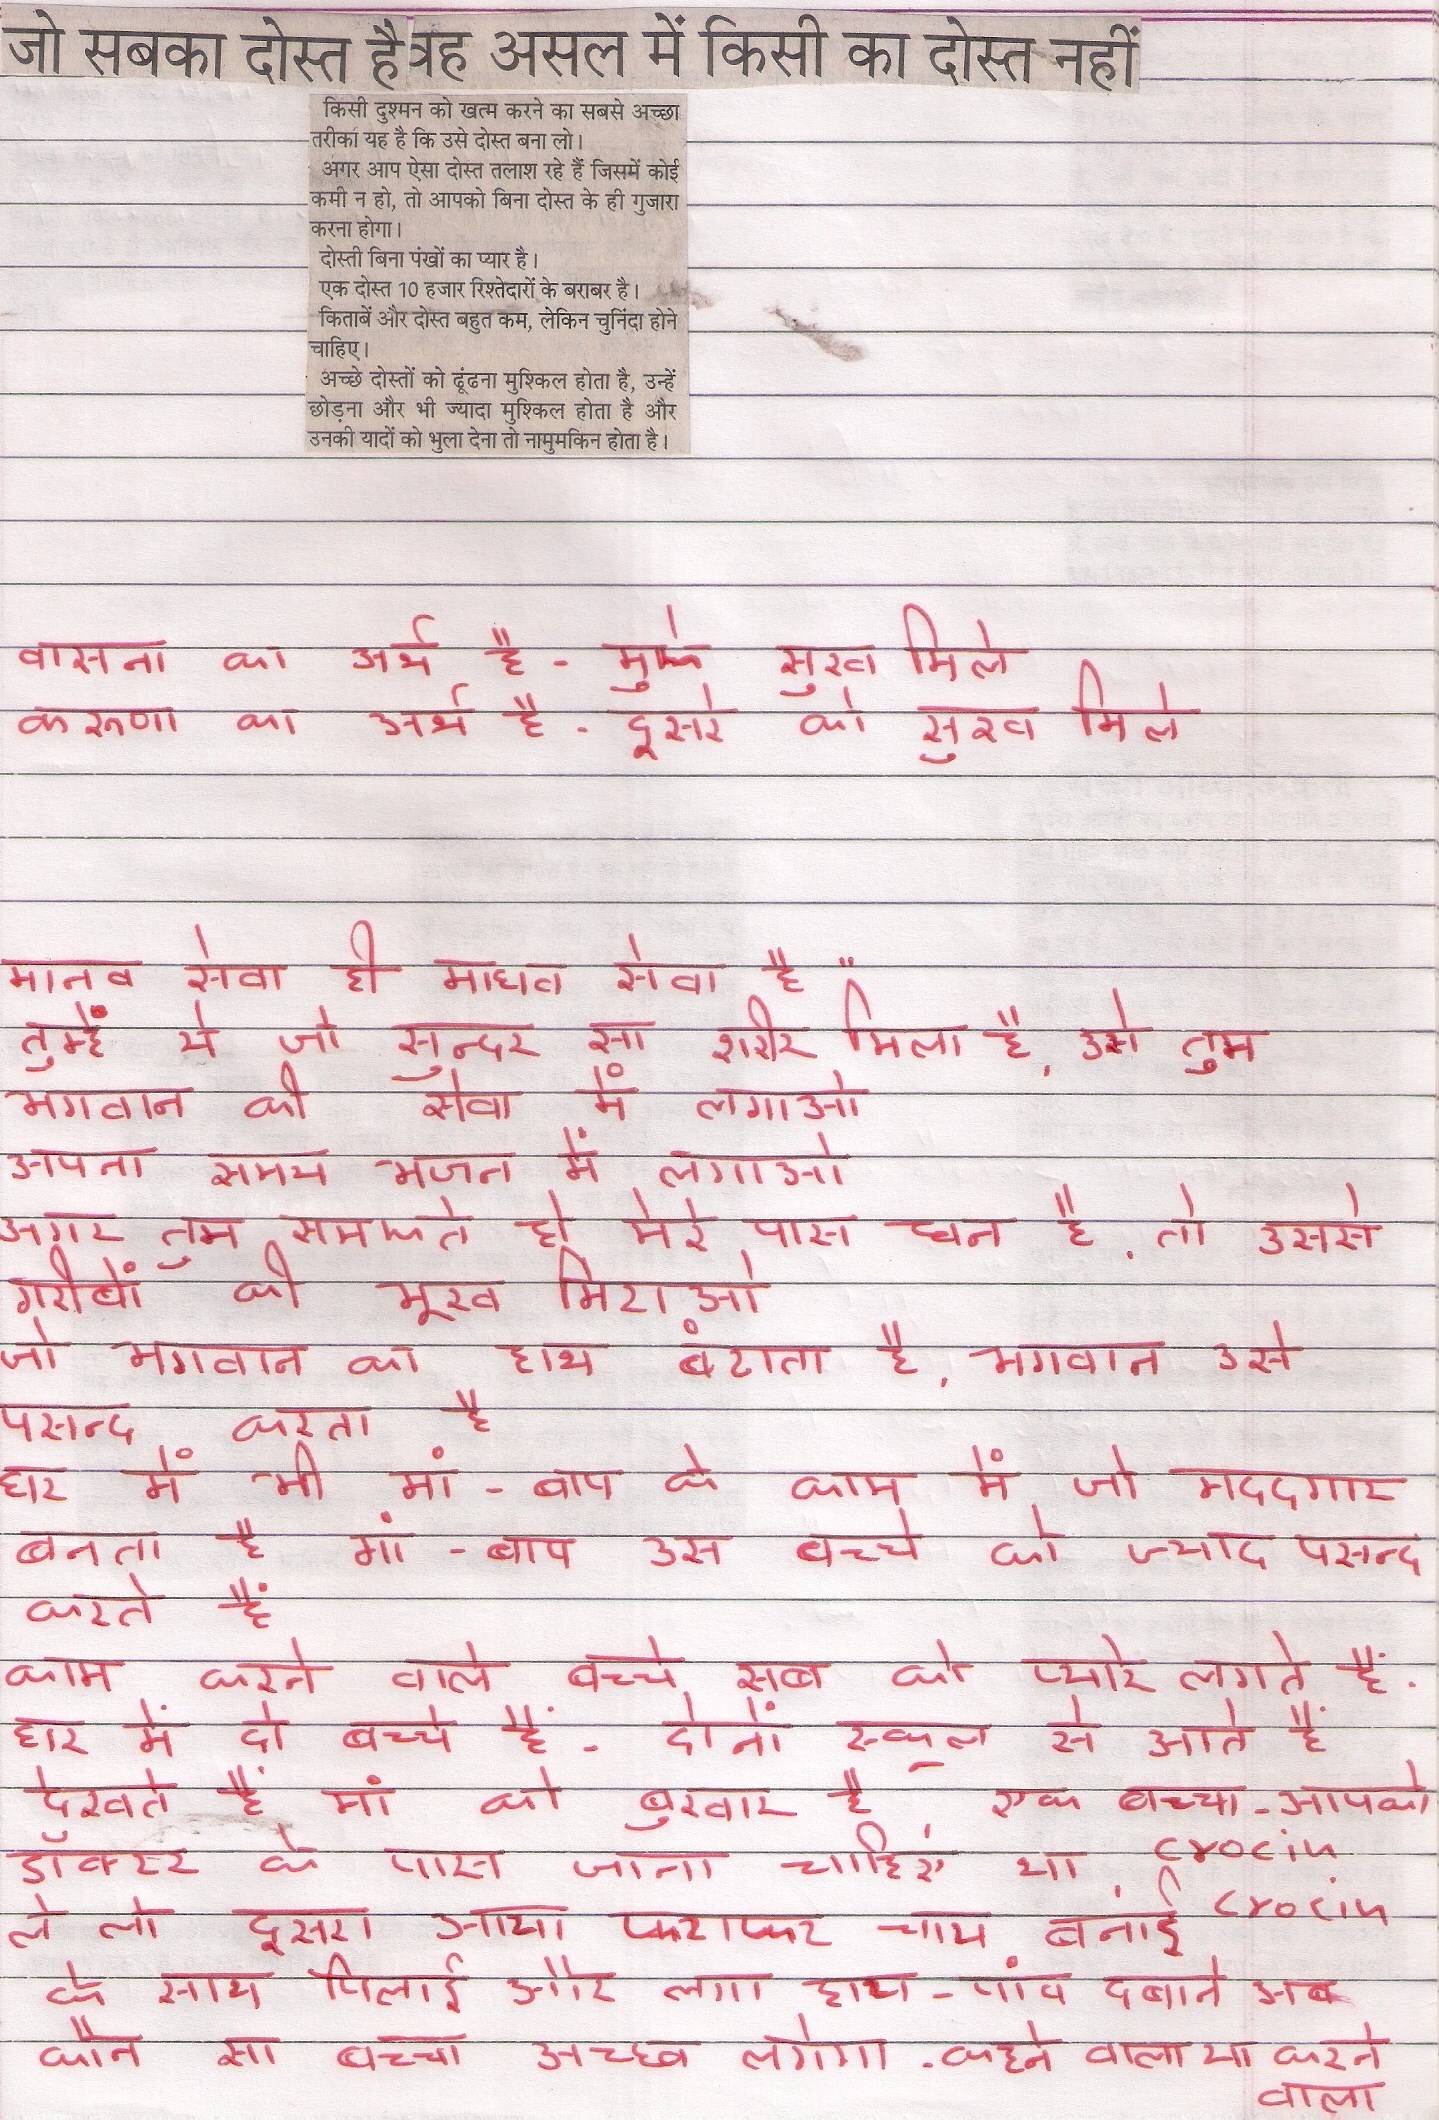 जो सबका दोस्त है वह असल में किसी का दोस्त नहीं
किसी दुश्मन को खत्म करने का सबसे अच्छा
तरीका यह है कि उसे दोस्त बना लो।
अगर आप ऐसा दोस्त तलाश रहे हैं जिसमें कोई
कमी न हो, तो आपको बिना दोस्त के ही गुजारा
करना होगा।
दोस्ती बिना पंखों का प्यार है।
एक दोस्त 10 हजार रिश्तेदारों के बराबर है।
किताबें और दोस्त बहुत कम, लेकिन चुनिंदा होने
चाहिए।
अच्छे दोस्तों को ढूंढना मुश्किल होता है, उन्हें
छोड़ना और भी ज्यादा मुश्किल होता है और
उनकी यादों को भुला देना तो नामुमकिन होता है।
वासना का अर्थ है - मुझे सुख मिले
करूणा का अर्थ है - दूसरे को सुख मिले
मानव सेवा ही माधव सेवा है "
तुम्हें ये जो सुन्दर सा शरीर मिला है, उसे तुम
भगवान की सेवा में लगाओ
अपना समय भजन में लगाओ
अगर तुम समझते हो मेरे पास धन है, तो उससे
गरीबों की भूख मिटाओ
जो भगवान का हाथ बंटाता है, भगवान उसे
पसन्द करता है
घर में भी मां - बाप के काम में जो मददगार
बनता है मां - बाप उस बच्चे को ज्याद पसन्द
करते हैं
काम करने वाले बच्चे सब को प्यारे लगते हैं.
घर में दो बच्चे हैं - दोनों स्कूल से आते हैं
देखते हैं मां को बुखार है एक बच्चा - आपको
डॉक्टर के पास जाना चाहिए या crocin
ले लो दूसरा आया फटाफट चाय बनाई crocin
के साथ पिलाई और लगा हाथ - पांव दबाने अब
कौन सा बच्चा अच्छा लगेगा - कहने वाला या करने
वाला